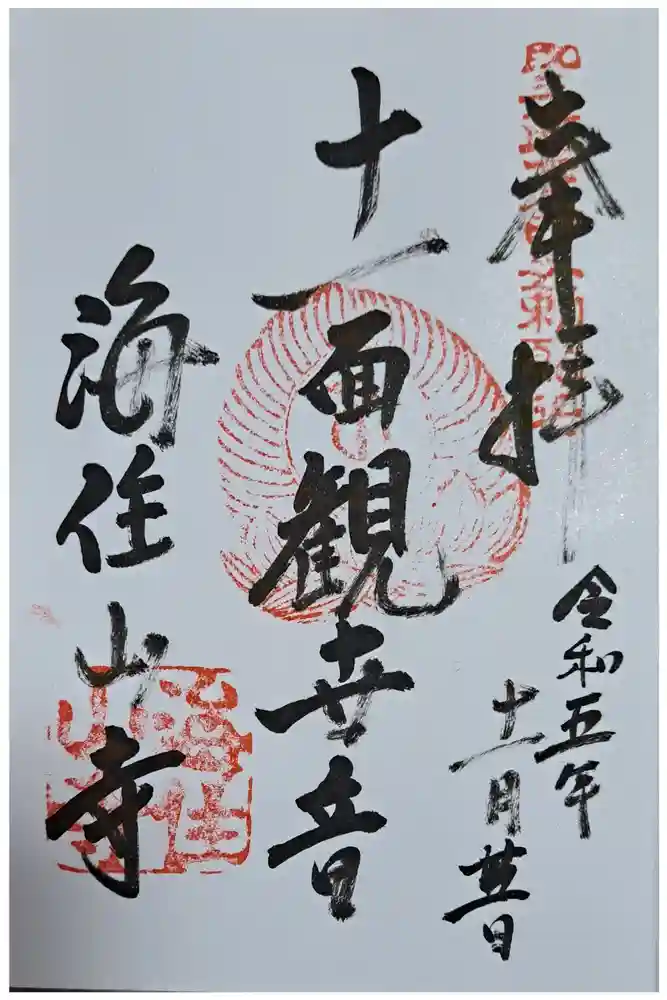 奉拝
令和五年
十一月
十一面観世音
海住山寺
海住
山寺